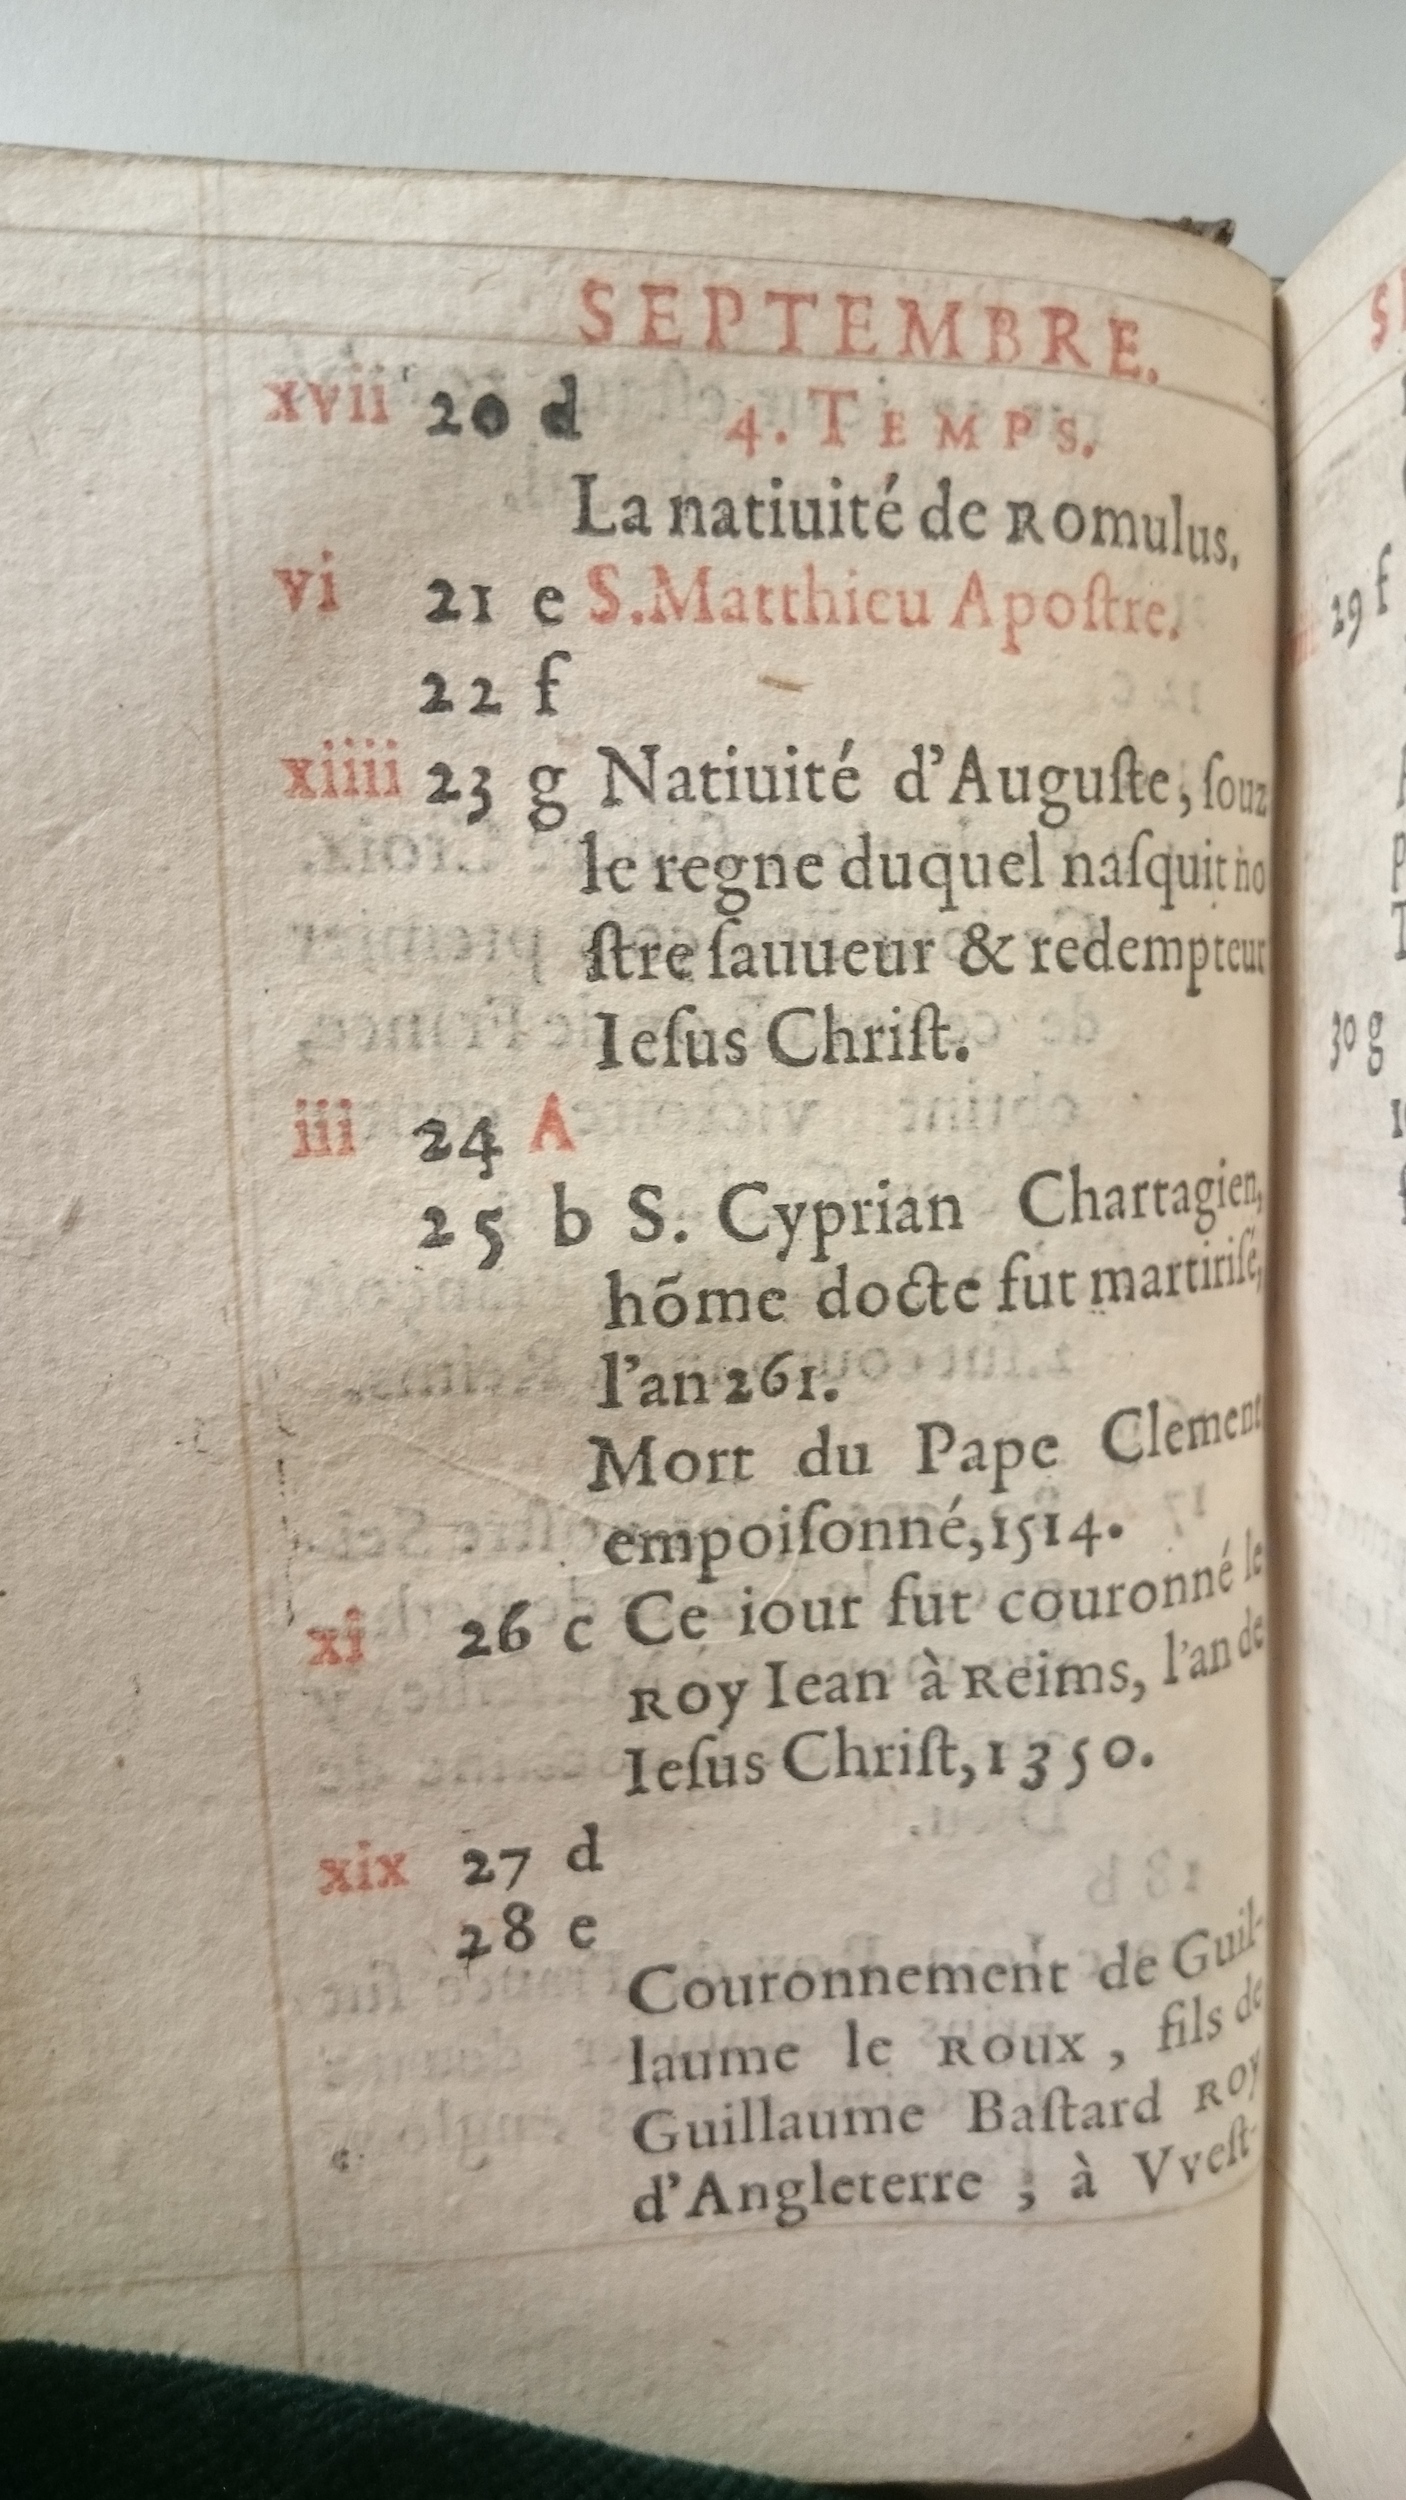 SEPTEMBRE.
xvii 20 d 4. TEMPS.
La natiuité de Romulus.
vi 21 e S.Matthieu Apoſtre.
22 f
xiiii 23 g Natiuité d'Auguſte, ſouz
le regne duquel naſquit no
ſtre ſauueur & redempteur
Ieſus Chriſt.
iii 24 A
25 b S. Cyprian Chartagien,
hõme docte fut martiriſé,
l'an 261.
Mort du Pape Clement
empoiſonné, 1514.
xi 26 c Ce iour fut couronné le
Roy Iean à Reims, l'an de
Ieſus Chriſt, 1350.
xix 27 d
28 e
Couronnement de Guil-
laume le Roux, fils de
Guillaume Baſtard Roy
d'Angleterre, à VVeſt-
29 f
30 g